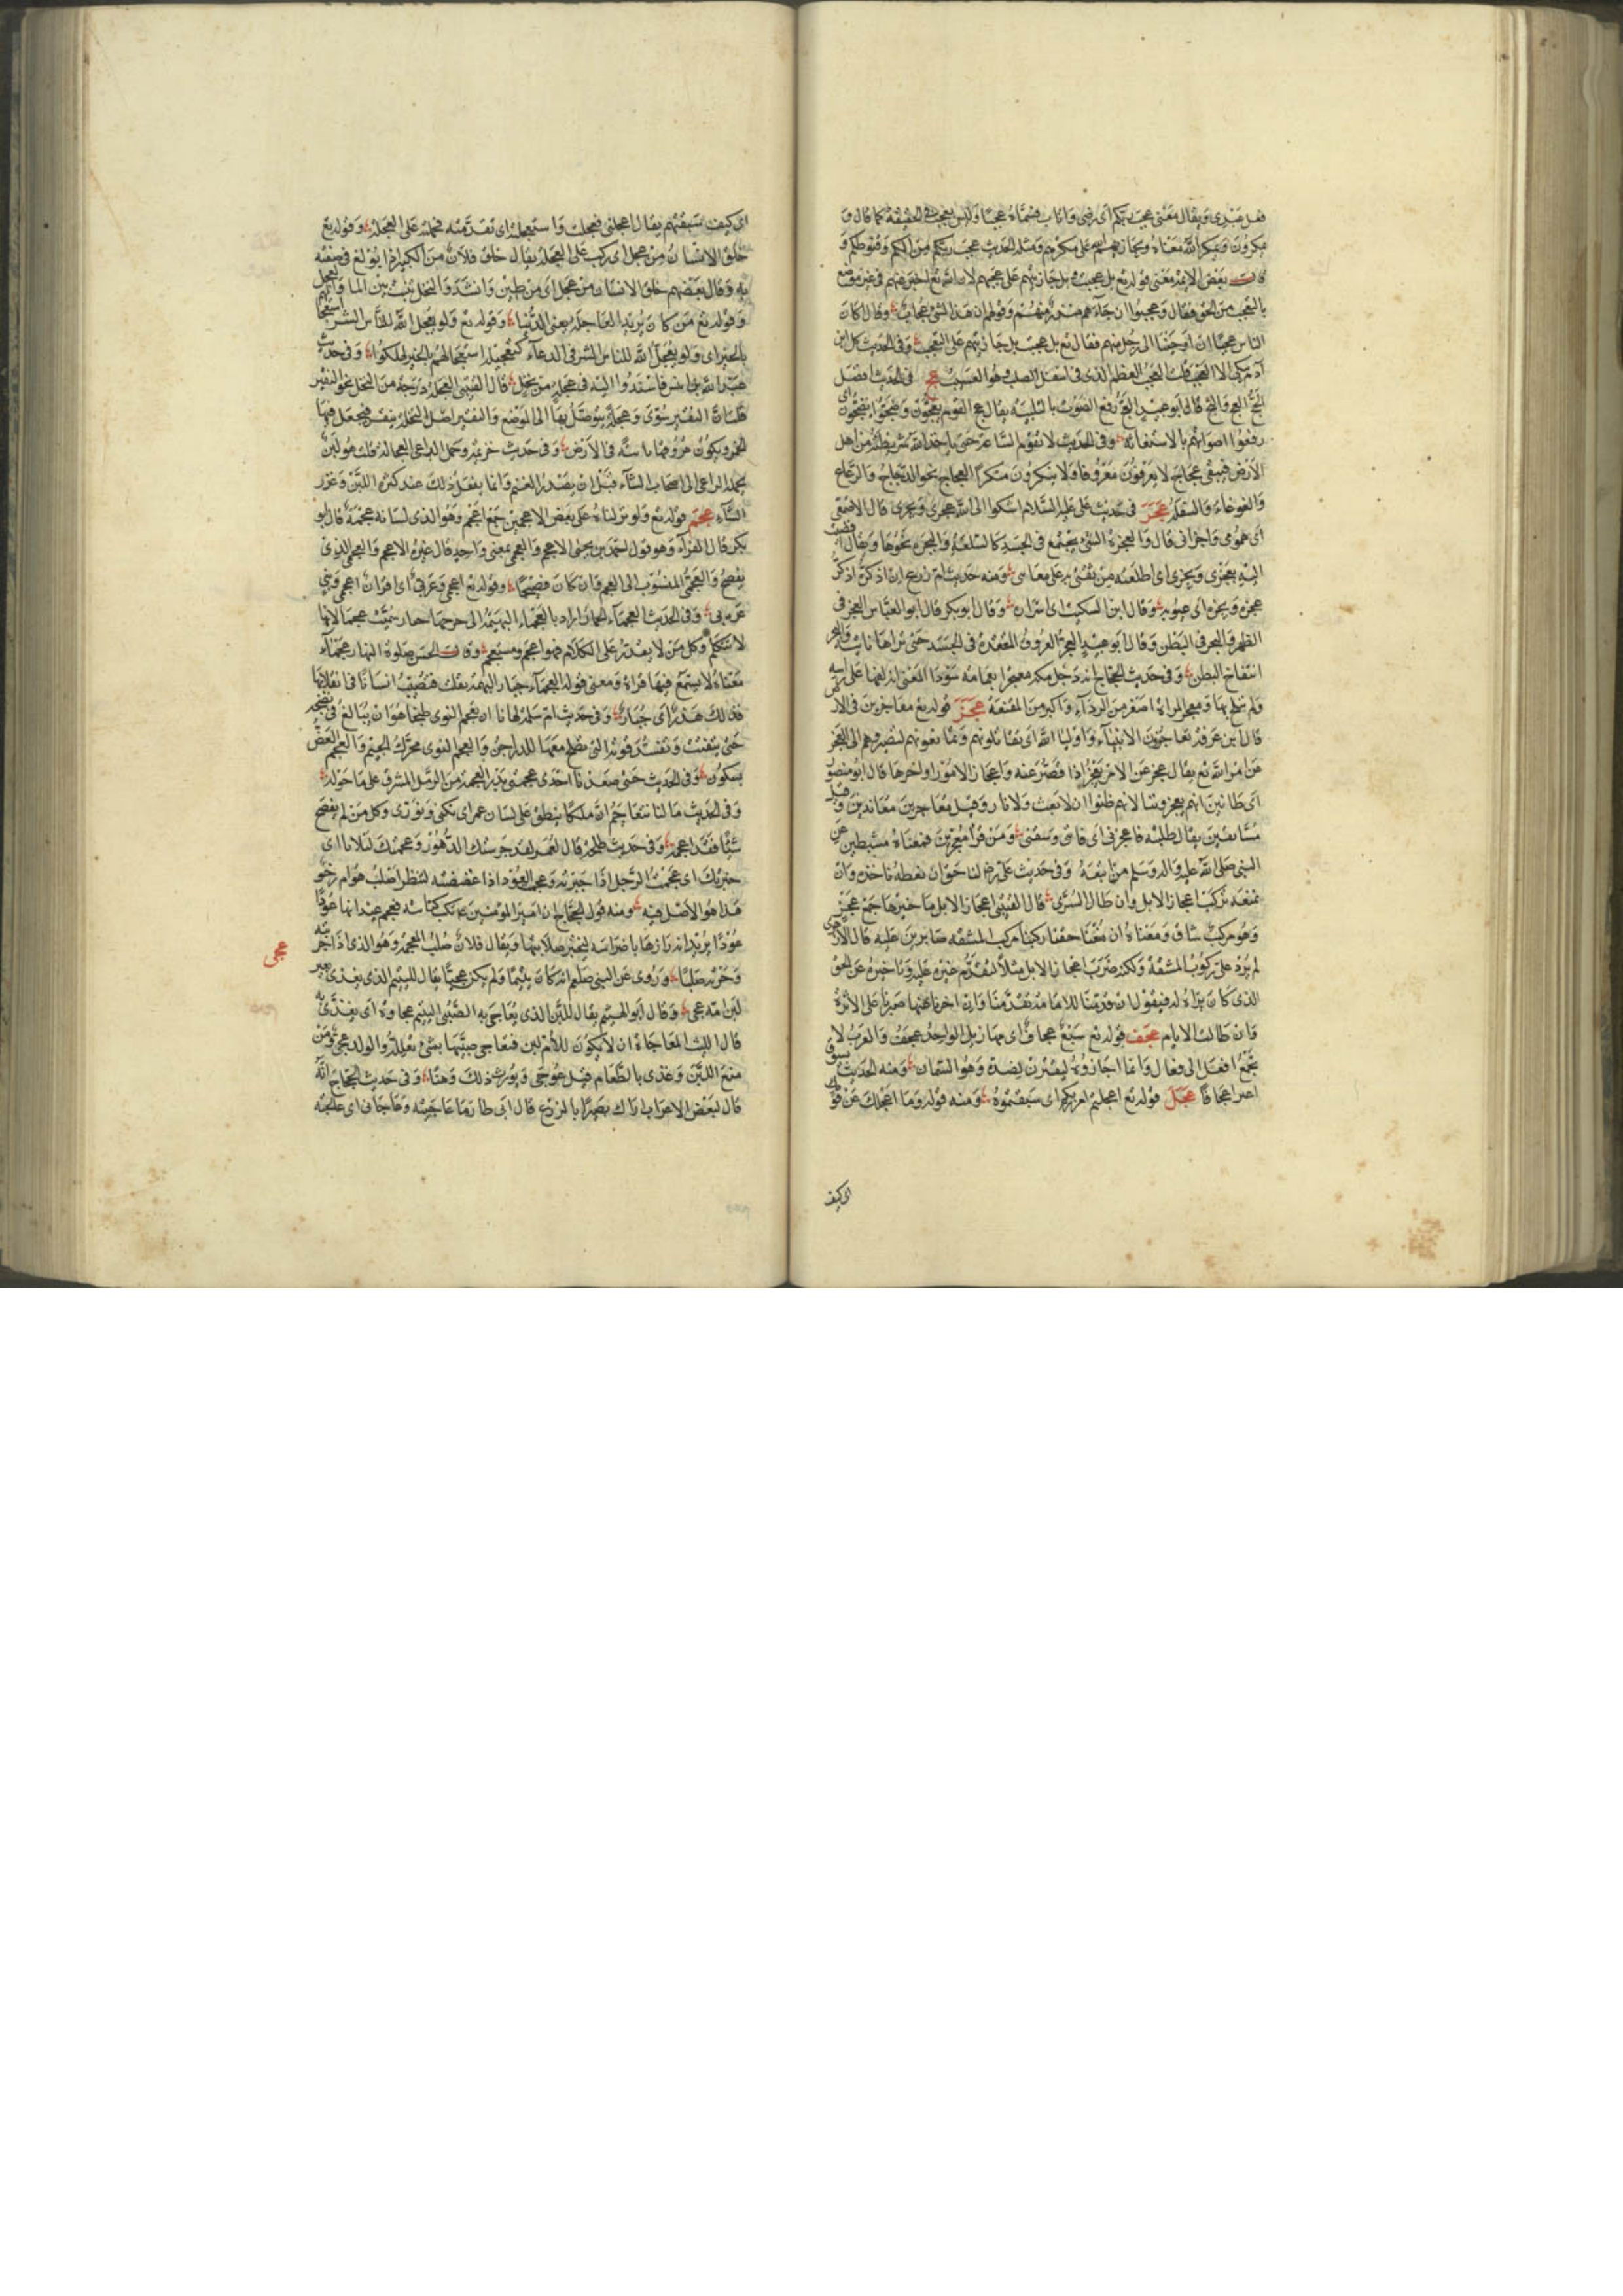 فقل عندى ويقال معنى عجب ربكم اى رضى واثاب فسماه عجبا وليس بعجب فى الحقيقة كما قال و
يمكرون ويمكر الله معناه ويجازيهم الله على مكرهم ومثله الحديث عجب ربكم من الكم وقنوطكم و
قالت بعض الائمة معنى قوله تع بل عجبت بل جازيتهم على عجبهم لان الله تع اخبر عنهم فى غير موضع
بالتعجب من الحق فقال وعجبوا ان جاءهم منذر منهم وقولهم ان هذا لشئ عجاب وقال اكان
الناس عجبا ان اوحينا الى رجل منهم فقال تع بل عجبت بل جازيتهم على التعجب وفى الحديث كل ابن
آدم يبلى الا العجب قلت العجب العظم الذى فى اسفل الصلب وهو العسيب عج فى الحديث افضل
الحج العج والثج قال ابو عبيد العج رفع الصوت بالتلبية يقال عج القوم يعجون وضجوا يضجون اى
رفعوا اصواتهم بالاستغاثة وفى الحديث لا تقوم الساعة حتى ياخذ الله شريطته من اهل
الارض فيبقى عجاج لا يعرفون معروفا ولا ينكرون منكرا العجاج نحو الدجاج والرعاع
والغوغاء والسفلة عجر فى حديث على عليه السلام اشكوا الى الله عجرى وبجرى قال الاصمعى
اى همومى واحزانى قال والعجرة الشئ يجتمع فى الجسد كالسلعة والبجرة نحوها ويقال افضيت
اليه بعجرى وبجرى اى اطلعته من ثقتى به على معايبى ومنه حديث ام زرع ان اذكره اذكر
عجره وبجره اى عيوبه وقال ابن السكيت اى اسراره وقال ابو بكر قال ابو العباس العجر فى
الظهر والبجر فى البطن وقال ابو عبيد العجر العروق المتعقدة فى الجسد حتى تراها ناتئة والبجر
انتفاخ البطن وفى حديث الحجاج انه دخل مكة معتجرا بعمامة سوداء المعنى انه لفها على راسه
ولم يتلح بها ومعجر المراة اصغر من الرداء واكبر من المقنعة عجز قوله تع معاجزين فى الارض
قال ابن عرفة يعاجزون الانبياء واولياء الله اى يقاتلونهم ويمانعونهم ليصيروهم الى العجز
عن امر الله تع يقال عجز عن الامر يعجز اذا قصر عنه واعجاز الامور اواخرها قال ابو منصور
اى ظانين انهم يعجزوننا لانهم ظنوا ان لا بعث ولا نار وقيل معاجزين معاندين وقيل
مسابقين يقال طلبته فاعجزنى اى فاتنى وسبقنى ومن قرأ معجزين فمعناه مثبطين عن
النبى صلى الله عليه واله وسلم من اتبعه وفى حديث على رض لنا حق ان نعطه ناخذه وان
نمنعه نركب اعجاز الابل وان طال السرى قال القتيبى اعجاز الابل ماخيرها جمع عجز
وهو مركب شاق ومعناه ان منعنا حقنا ركبنا مركب المشقة صابرين عليه قال الازهرى
لم يرد على ركوب المشقة ولكنه ضرب اعجاز الابل مثلا لتقدم غيره عليه وتاخيره عن الحق
الذى كان يراه له فيقول ان قدمنا للامامة تقدمنا وان اخرنا عنها صبرنا على الاثرة
وان طالت الايام عجف قوله تع سبع عجاف اى مهازيل الواحد عجف والعرب لا
تجمع افعل الى فعال وانما اجازوه ليقترن بضده وهو السمان ومنه الحديث يسوق
اعنزا عجافا عجل قوله تع اعجلتم امر ربكم اى سبقتموه ومنه قوله وما اعجلك عن قومك
اى كيف
اى كيف سبقتهم يقال اعجلنى فعجلت واستعجلته اى تقدمته فحملته على العجلة وقوله تع
خلق الانسان من عجل اى ركب على العجلة يقال خلق فلان من الكبر اذا بولغ فى صفته
به وقال بعضهم خلق الانسان من عجل اى من طين وانشد والنخل ينبت بين الماء والعجل
وقوله تع من كان يريد العاجلة يعنى الدنيا وقوله تع ولو يعجل الله للناس الشر استعجالهم
بالخير اى ولو يعجل الله للناس الشر فى الدعاء كتعجيله استعجالهم بالخير لهلكوا وفى حديث
عبد الله بن انيس فاسندوا اليه فى عجلة من نخل قال القتيبى العجلة درجة من النخل نحو النقير
قلت ان النقير سوى وعجلة يتوصل بها الى الموضع والنقير اصل النخلة ينقر فيجعل فيها
الخمر ويكون عروقها ثابتة فى الارض وفى حديث خزيمة وحمل الراعى العجالة قلت هو لبن
يحمله الراعى الى اصحاب الشاء قبل ان يصدر الغنم وانما يفعل ذلك عند كثرة اللبن وغزر
الشاء عجم قوله تع ولو نزلناه على بعض الاعجمين جمع اعجم وهو الذى لسانه عجمة قال ابو
بكر قال الفراء وهو قول احمد بن يحيى الاعجم والعجمى بمعنى واحد قال غيره الاعجم والعجمى الذى لا
يفصح والعجمى المنسوب الى العجم وان كان فصيحا وقوله تع اعجمى وعربى اى اقران اعجمى ونبى
عربى وفى الحديث العجماء جبار اراد بالعجماء البهيمة الى جرحها جبار سميت عجماء لانها
لا تتكلم وكل من لا يقدر على الكلام فهو اعجم ومستعجم وقالت الحسن صلوة النهار عجماء
معناه لا يسمع فيها قراءة ومعنى قوله العجماء جبار البهيمة تفلت فتصيب انسانا فى انفلاتها
فذلك هدر اى جبار وفى حديث ام سلمة نهانا ان نعجم النوى طبخا هو ان يبالغ فى نضجه
حتى يتفتت وتفسد قوته التى يصلح معها للدواجن والعجم النوى محرك الجيم والعجم العض
بسكون وفى الحديث حتى صعدنا احدى عجمتى بدر العجمة من الرمل المشرف على ما حوله
وفى الحديث ما كنا نتعاجم ان ملكا ينطق على لسان عمر اى نكنى ونورى وكل من لم يفصح
شيئا فقد اعجمه وفى حديث طلحة قال لعمر لقد جرستك الدهور وعجمتك البلايا اى
خبرتك اى عجمت الرجل اذا خبرته وعجمت العود اذا عضضته لتنظر اصلب هو ام رخو
هذا هو الاصل فيه ومنه قول الحجاج ان امير المؤمنين نكب كنانته فعجم عيدانها عودا
عودا يريد انه رازها باضراسه ليخبر صلابتها ويقال فلان صلب المعجمة وهو الذى اذا جربته
وخزته صلبا وروى عن النبى صلعم انه كان يتيما ولم يكن عجيا يقال لليتيم الذى يغذى بغير
عجى
لبن امه عجى وقال ابو الهيثم يقال للبن الذى يعاجى به الصبى اليتيم عجاوة اى يغذى به
قال الليث المعاجاة ان لا يكون للام لبن فتعاجى صبيها بشئ تعلله والولد عجى ومن
منع اللبن وغذى بالطعام قيل عوجى ويورث ذلك وهنا وفى حديث الحجاج انه
قال لبعض الاعراب اراك بصيرا بالزرع قال انى طالما عاجيته وعاجانى اى عالجته